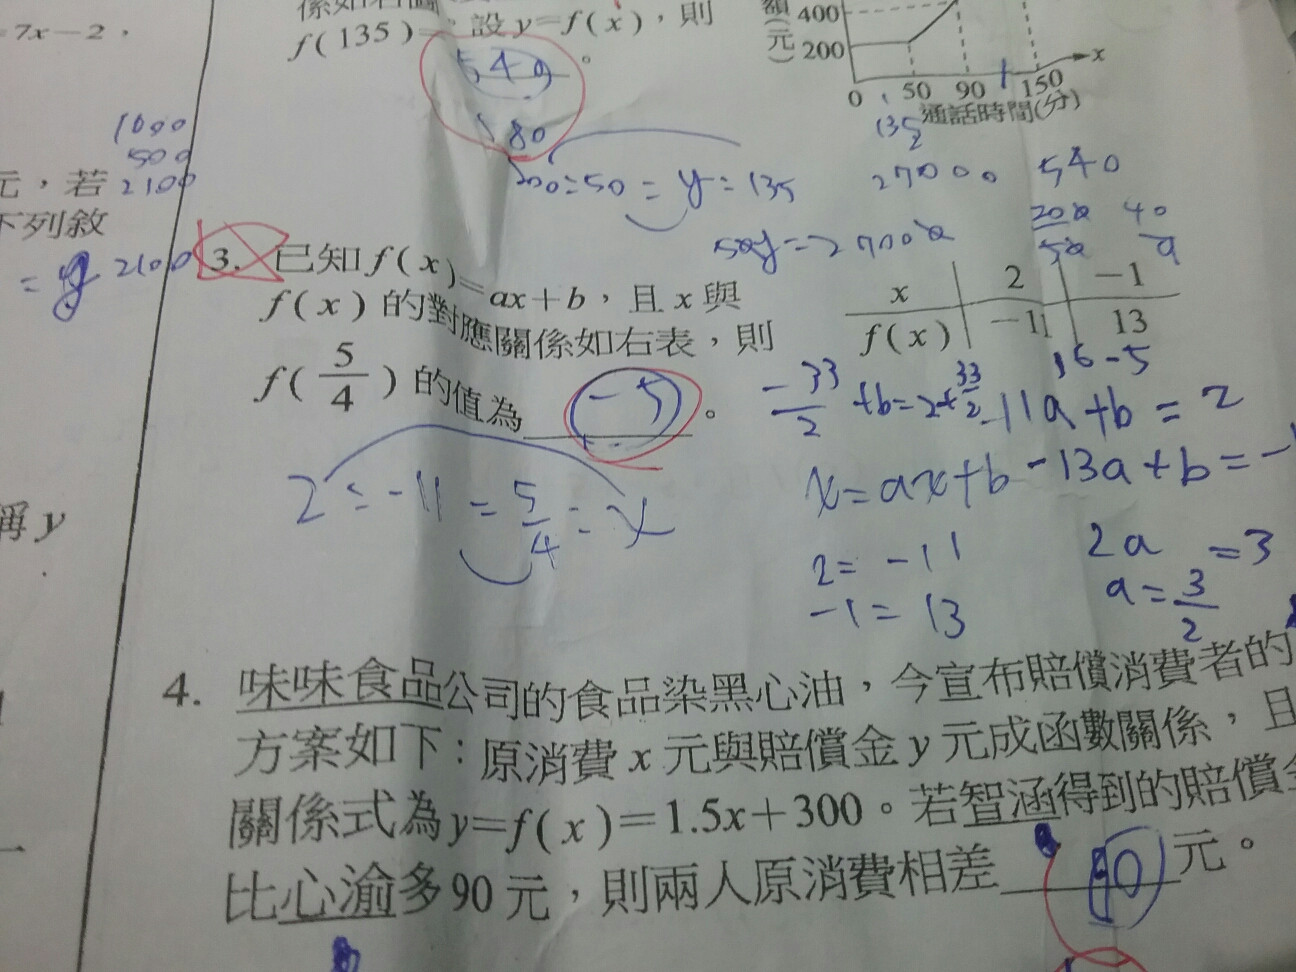 =7x−2，
元，若
下列敘
1000
500
2100
= y 2100
稱y
設y=f(x)，則
f(135)=
540
。
180
200=50=y=135
400
(元)
200
x
0 50 90 150
通話時間(分)
135
27000 540
50y=27000
3. 已知f(x)=ax+b，且x與
f(x)的對應關係如右表，則
f(5/4)的值為 −5 。
x 2 −1
f(x) −11 13
16-5
-33/2 +b=2+33/2
-11a+b=2
x=ax+b
-13a+b=-1
2=-11
-1=13
2a =3
a=3/2
2=-11=5/4=x
4. 味味食品公司的食品染黑心油，今宣布賠償消費者的
方案如下：原消費x元與賠償金y元成函數關係，且
關係式為y=f(x)=1.5x+300。若智涵得到的賠償金
比心渝多90元，則兩人原消費相差 元。